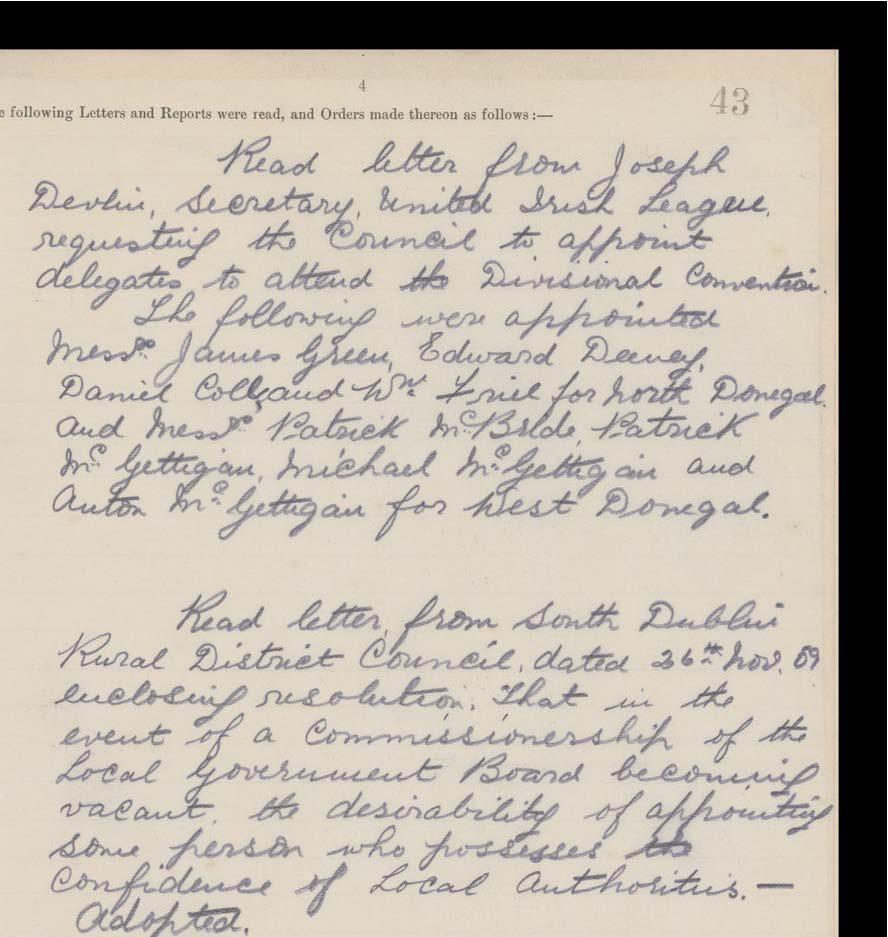 4
43
e following Letters and Reports were read, and Orders made thereon as follows:—
Read letter from Joseph
Devlin, Secretary, United Irish League,
requesting the Council to appoint
delegates to attend the Divisional Convention.
The following were appointed
Messrs. James Green, Edward Deeney,
Daniel Coll, and Wm. Friel for North Donegal
and Messrs. Patrick McBride, Patrick
McGettigan, Michael McGettigan and
Anton McGettigan for West Donegal.
Read letter from South Dublin
Rural District Council, dated 26th Nov. 09
enclosing resolution. That in the
event of a Commissionership of the
Local Government Board becoming
vacant, the desirability of appointing
some person who possesses the
confidence of Local Authorities.—
Adopted.